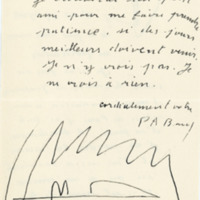 ami pour me faire prendre
patience, si des jours
meilleurs doivent venir.
Je n'y crois pas. Je
ne crois à rien.
cordialement votre
P A B